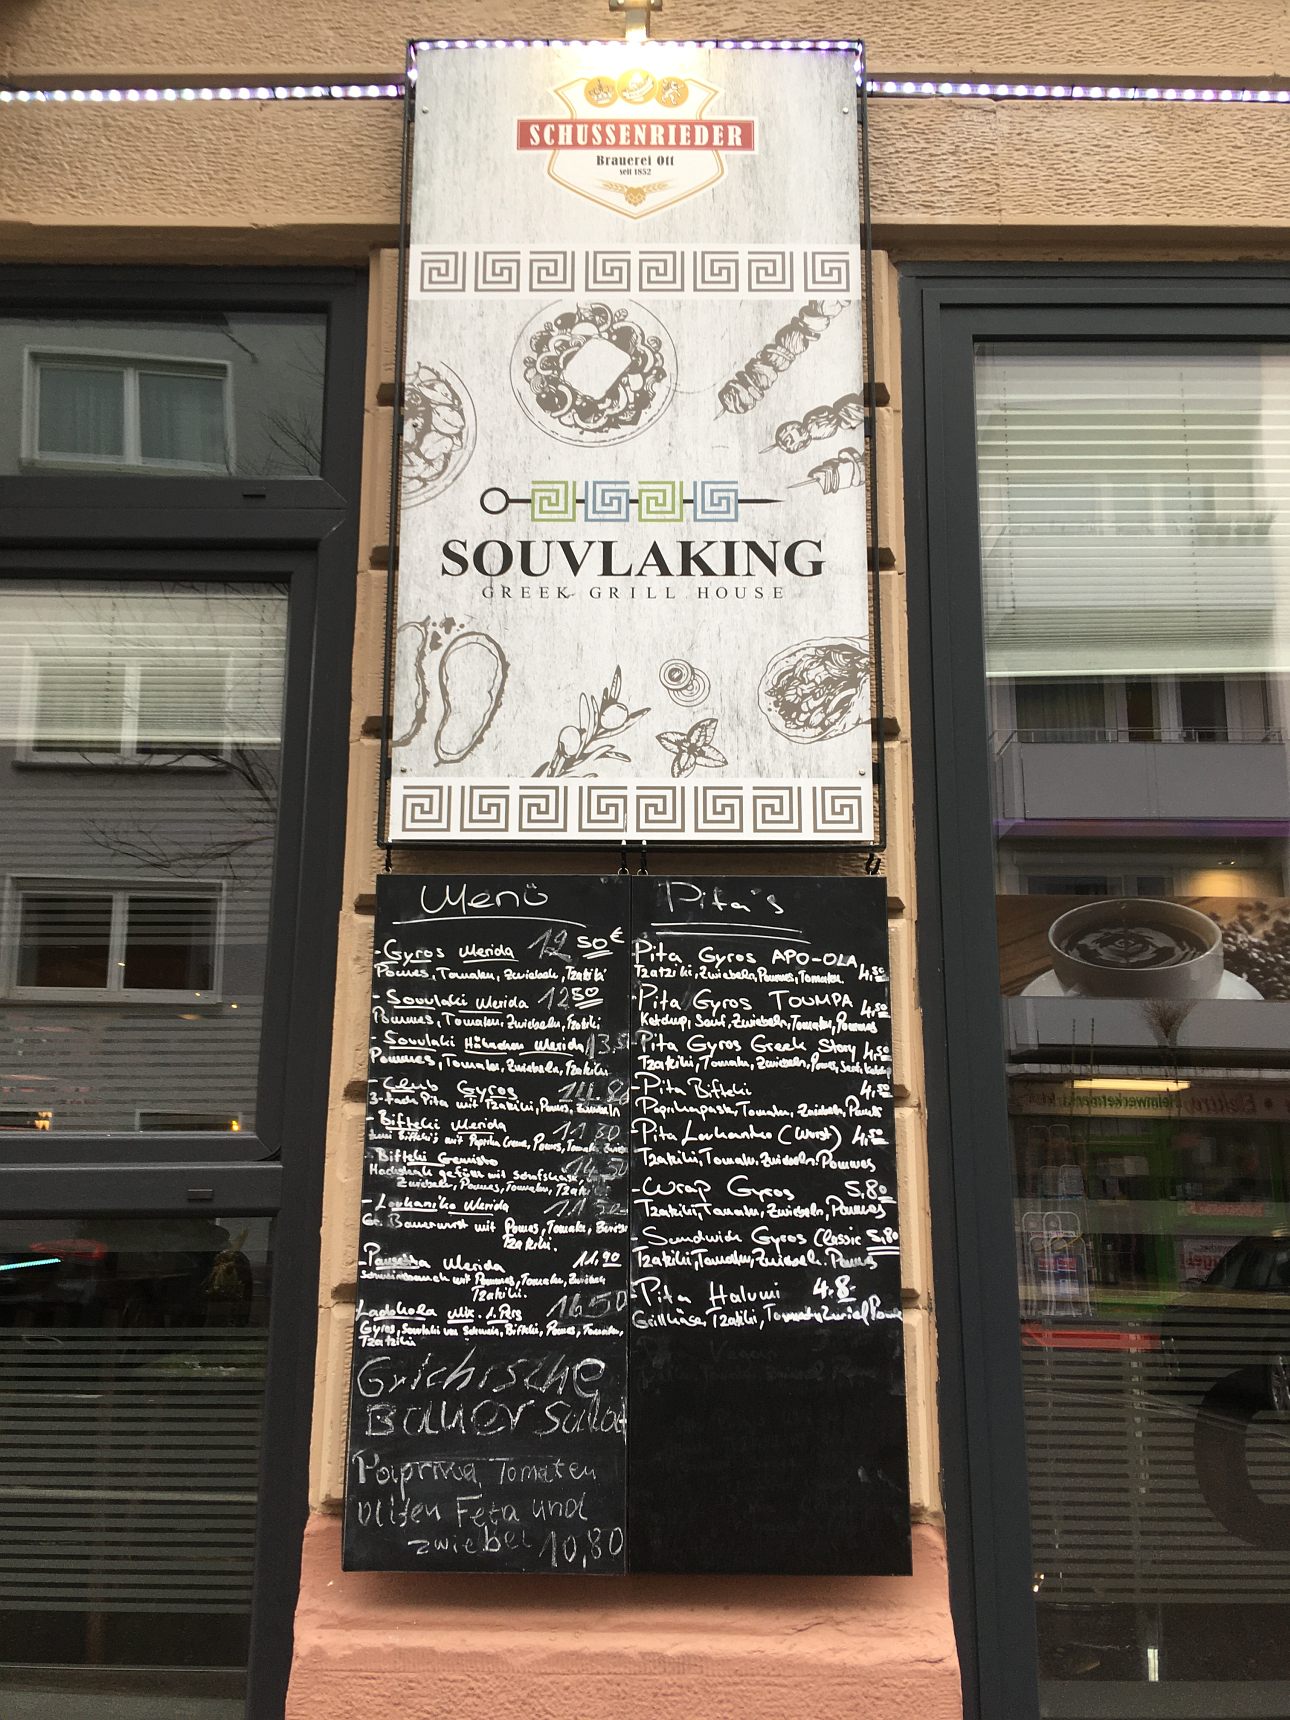 SCHUSSENRIEDER
Brauerei Ott
seit 1852
SOUVLAKING
GREEK GRILL HOUSE
Menü
- Gyros Merida 12 50€
Pomes, Tomaten, Zwiebeln, Tzatziki
- Souvlaki Merida 12 50
Pommes, Tomaten, Zwiebeln, Tzatziki
- Souvlaki Hähnchen Merida 13,5
Pommes, Tomaten, Zwiebeln, Tzatziki
- Club Gyros 14.80
3-fach Pita mit Tzatziki, Pomes, Zwiebeln
- Bifteki Merida 11 80
Bifteki's mit Paprika Creme, Pomes, Tomaten
- Bifteki Gemisto 14,50
gefüllt mit Schafskäse,
Zwiebeln, Pomes, Tomaten, Tzatziki
- Loukaniko Merida 11
Gr. Bauernwurst mit Pomes, Tomaten,
Tzatziki.
- Pansetta Merida 11.90
mit Pommes, Tomaten, Zwiebeln
Tzatziki.
Ladokola Mix. 1. Pers 16 50
Gyros, Souvlaki von Schwein, Bifteki, Pomes, Tomaten,
Tzatziki
Grichische
Bauer Salat
Paprika, Tomaten
Olifen Feta und
zwiebel 10,80
Pita's
Pita Gyros APO-OLA
Tzatziki, Zwiebeln, Pommes, Tomaten 4,50
- Pita Gyros TOUMPA 4,50
Ketchup, Senf, Zwiebeln, Tomaten, Pommes
- Pita Gyros Greek Story 4,50
Tzatziki, Tomaten, Zwiebeln, Pomes, Senf, Ketchup
- Pita Bifteki 4,50
Paprikapaste, Tomaten, Zwiebeln, Pomes
Pita Loukaniko (Wurst) 4,50
Tzatziki, Tomaten, Zwiebeln, Pommes
- Wrap Gyros 5,80
Tzatziki, Tomaten, Zwiebeln, Pommes
Sandwich Gyros Classic 5,80
Tzatziki, Tomaten, Zwiebeln, Pomes
- Pita Halumi 4.8
Grillkäse, Tzatziki, Tomaten, Zwiebel Pome